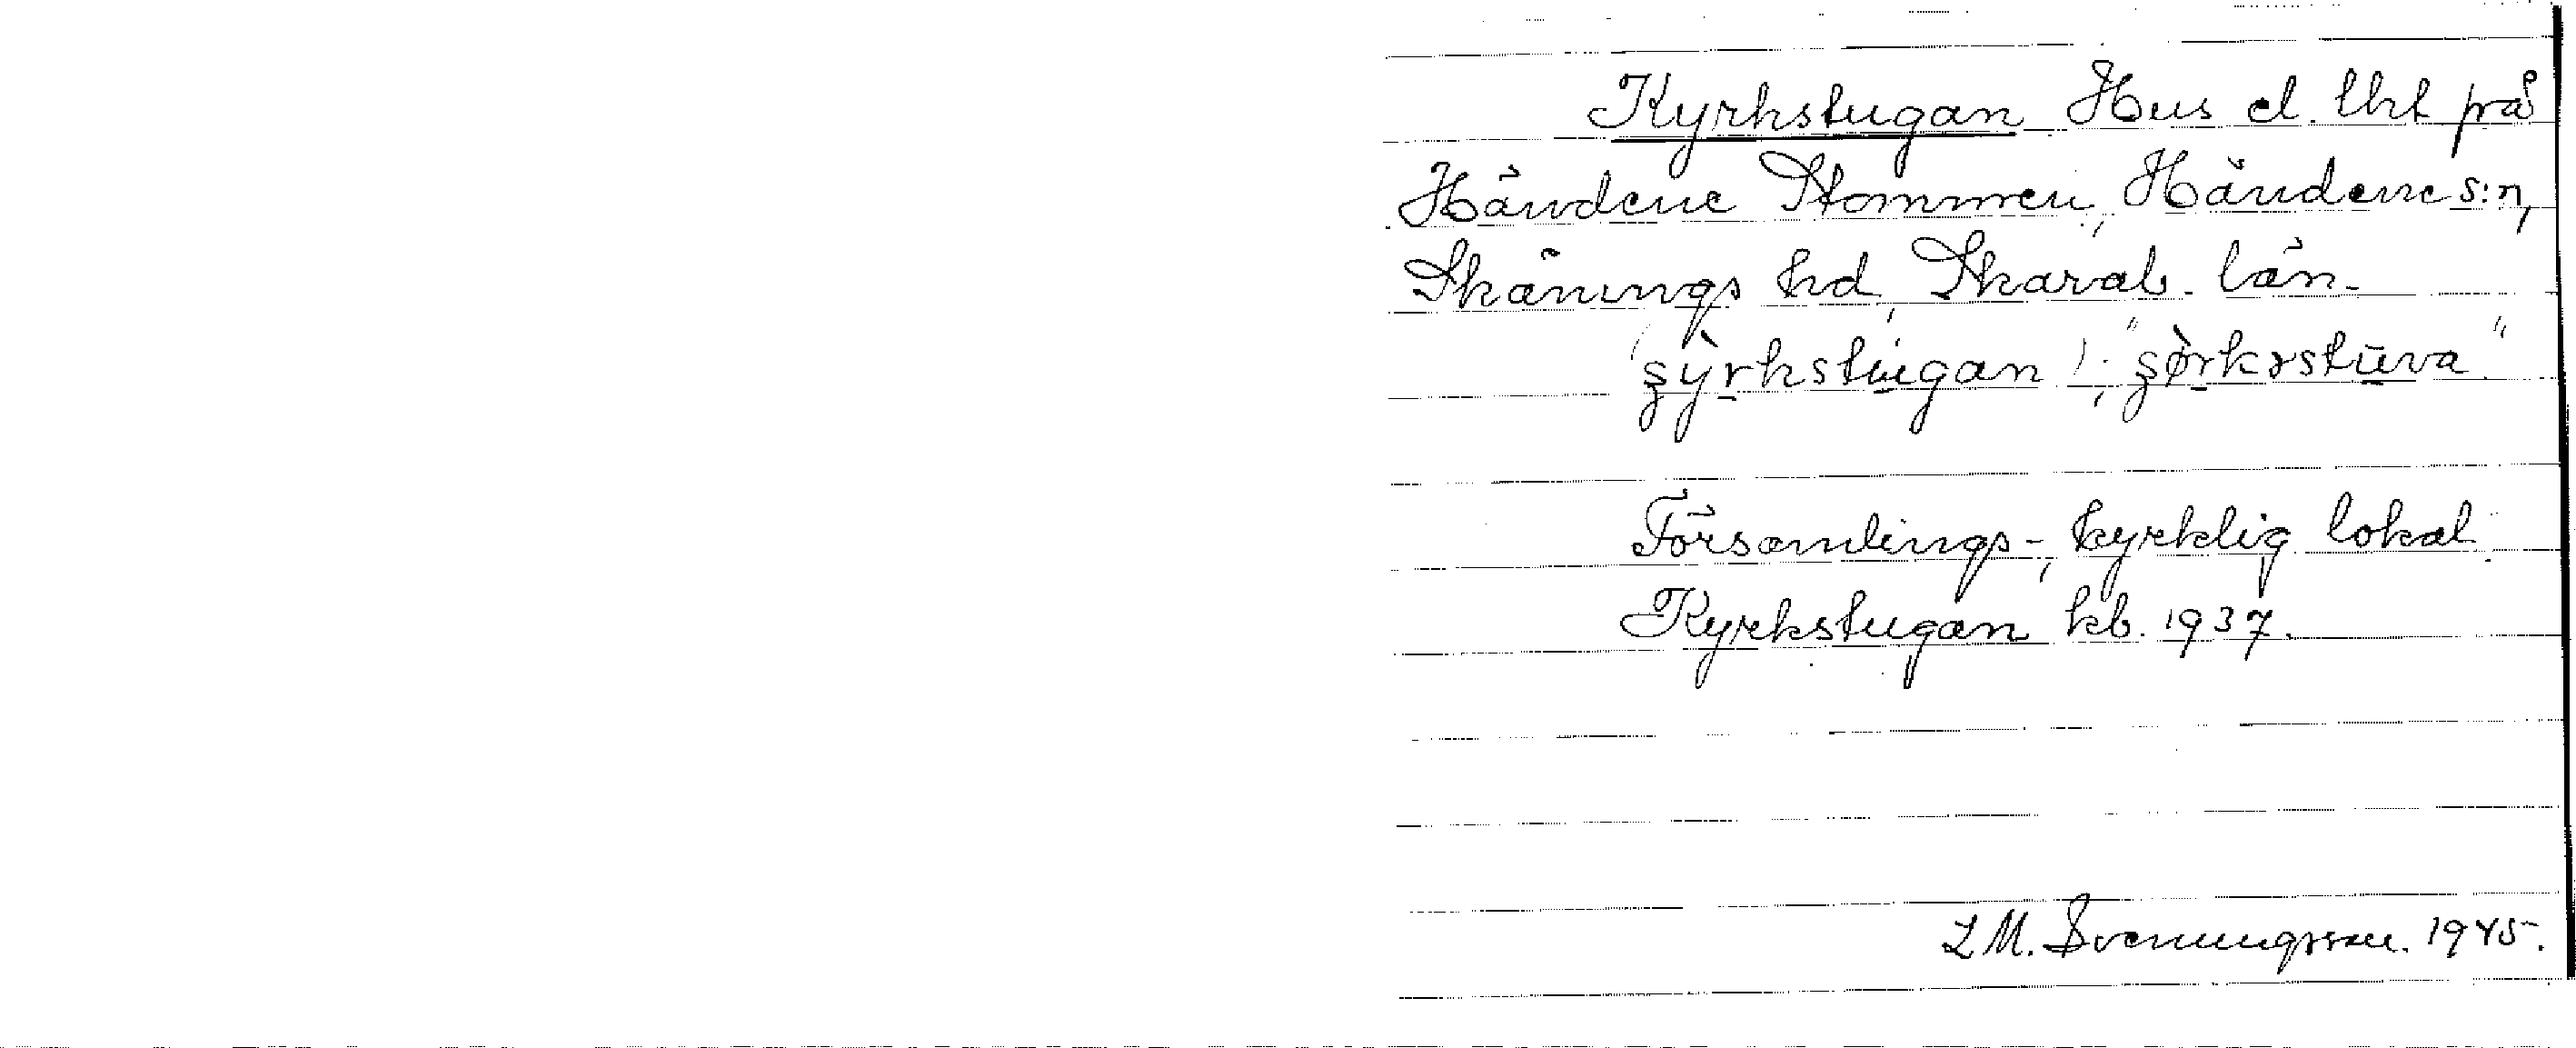 Kyrkstugan Hus el. lht på
Händene Stommen, Händene s:n,
Skånings hd, Skarab. län.
(şỳrkstugan); "şø̀rkstūva"
Församlings-, kyrklig lokal.
Kyrkstugan kb. 1937.
L M. Svenungsson. 1945.